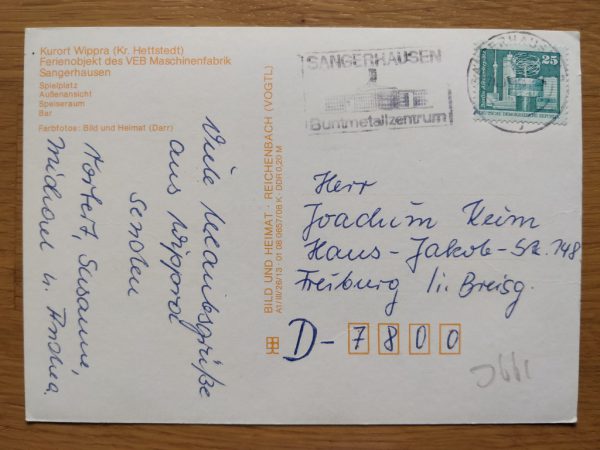 Kurort Wippra (Kr. Hettstedt)
Ferienobjekt des VEB Maschinenfabrik
Sangerhausen
Spielplatz
Außenansicht
Speiseraum
Bar
Farbfotos: Bild und Heimat (Darr)
Viele Urlaubsgrüße
aus Wippra
senden
Norbert, Susanne,
Michael u. Andrea
BILD UND HEIMAT · REICHENBACH (VOGTL)
A1/III/26/13 · 01 08 0657/08 K · DDR 0,20 M
SANGERHAUSEN
Buntmetallzentrum
25
Herr
Joachim Keim
Hans-Jakob-Str. 148
Freiburg /i. Breisg.
D-7800